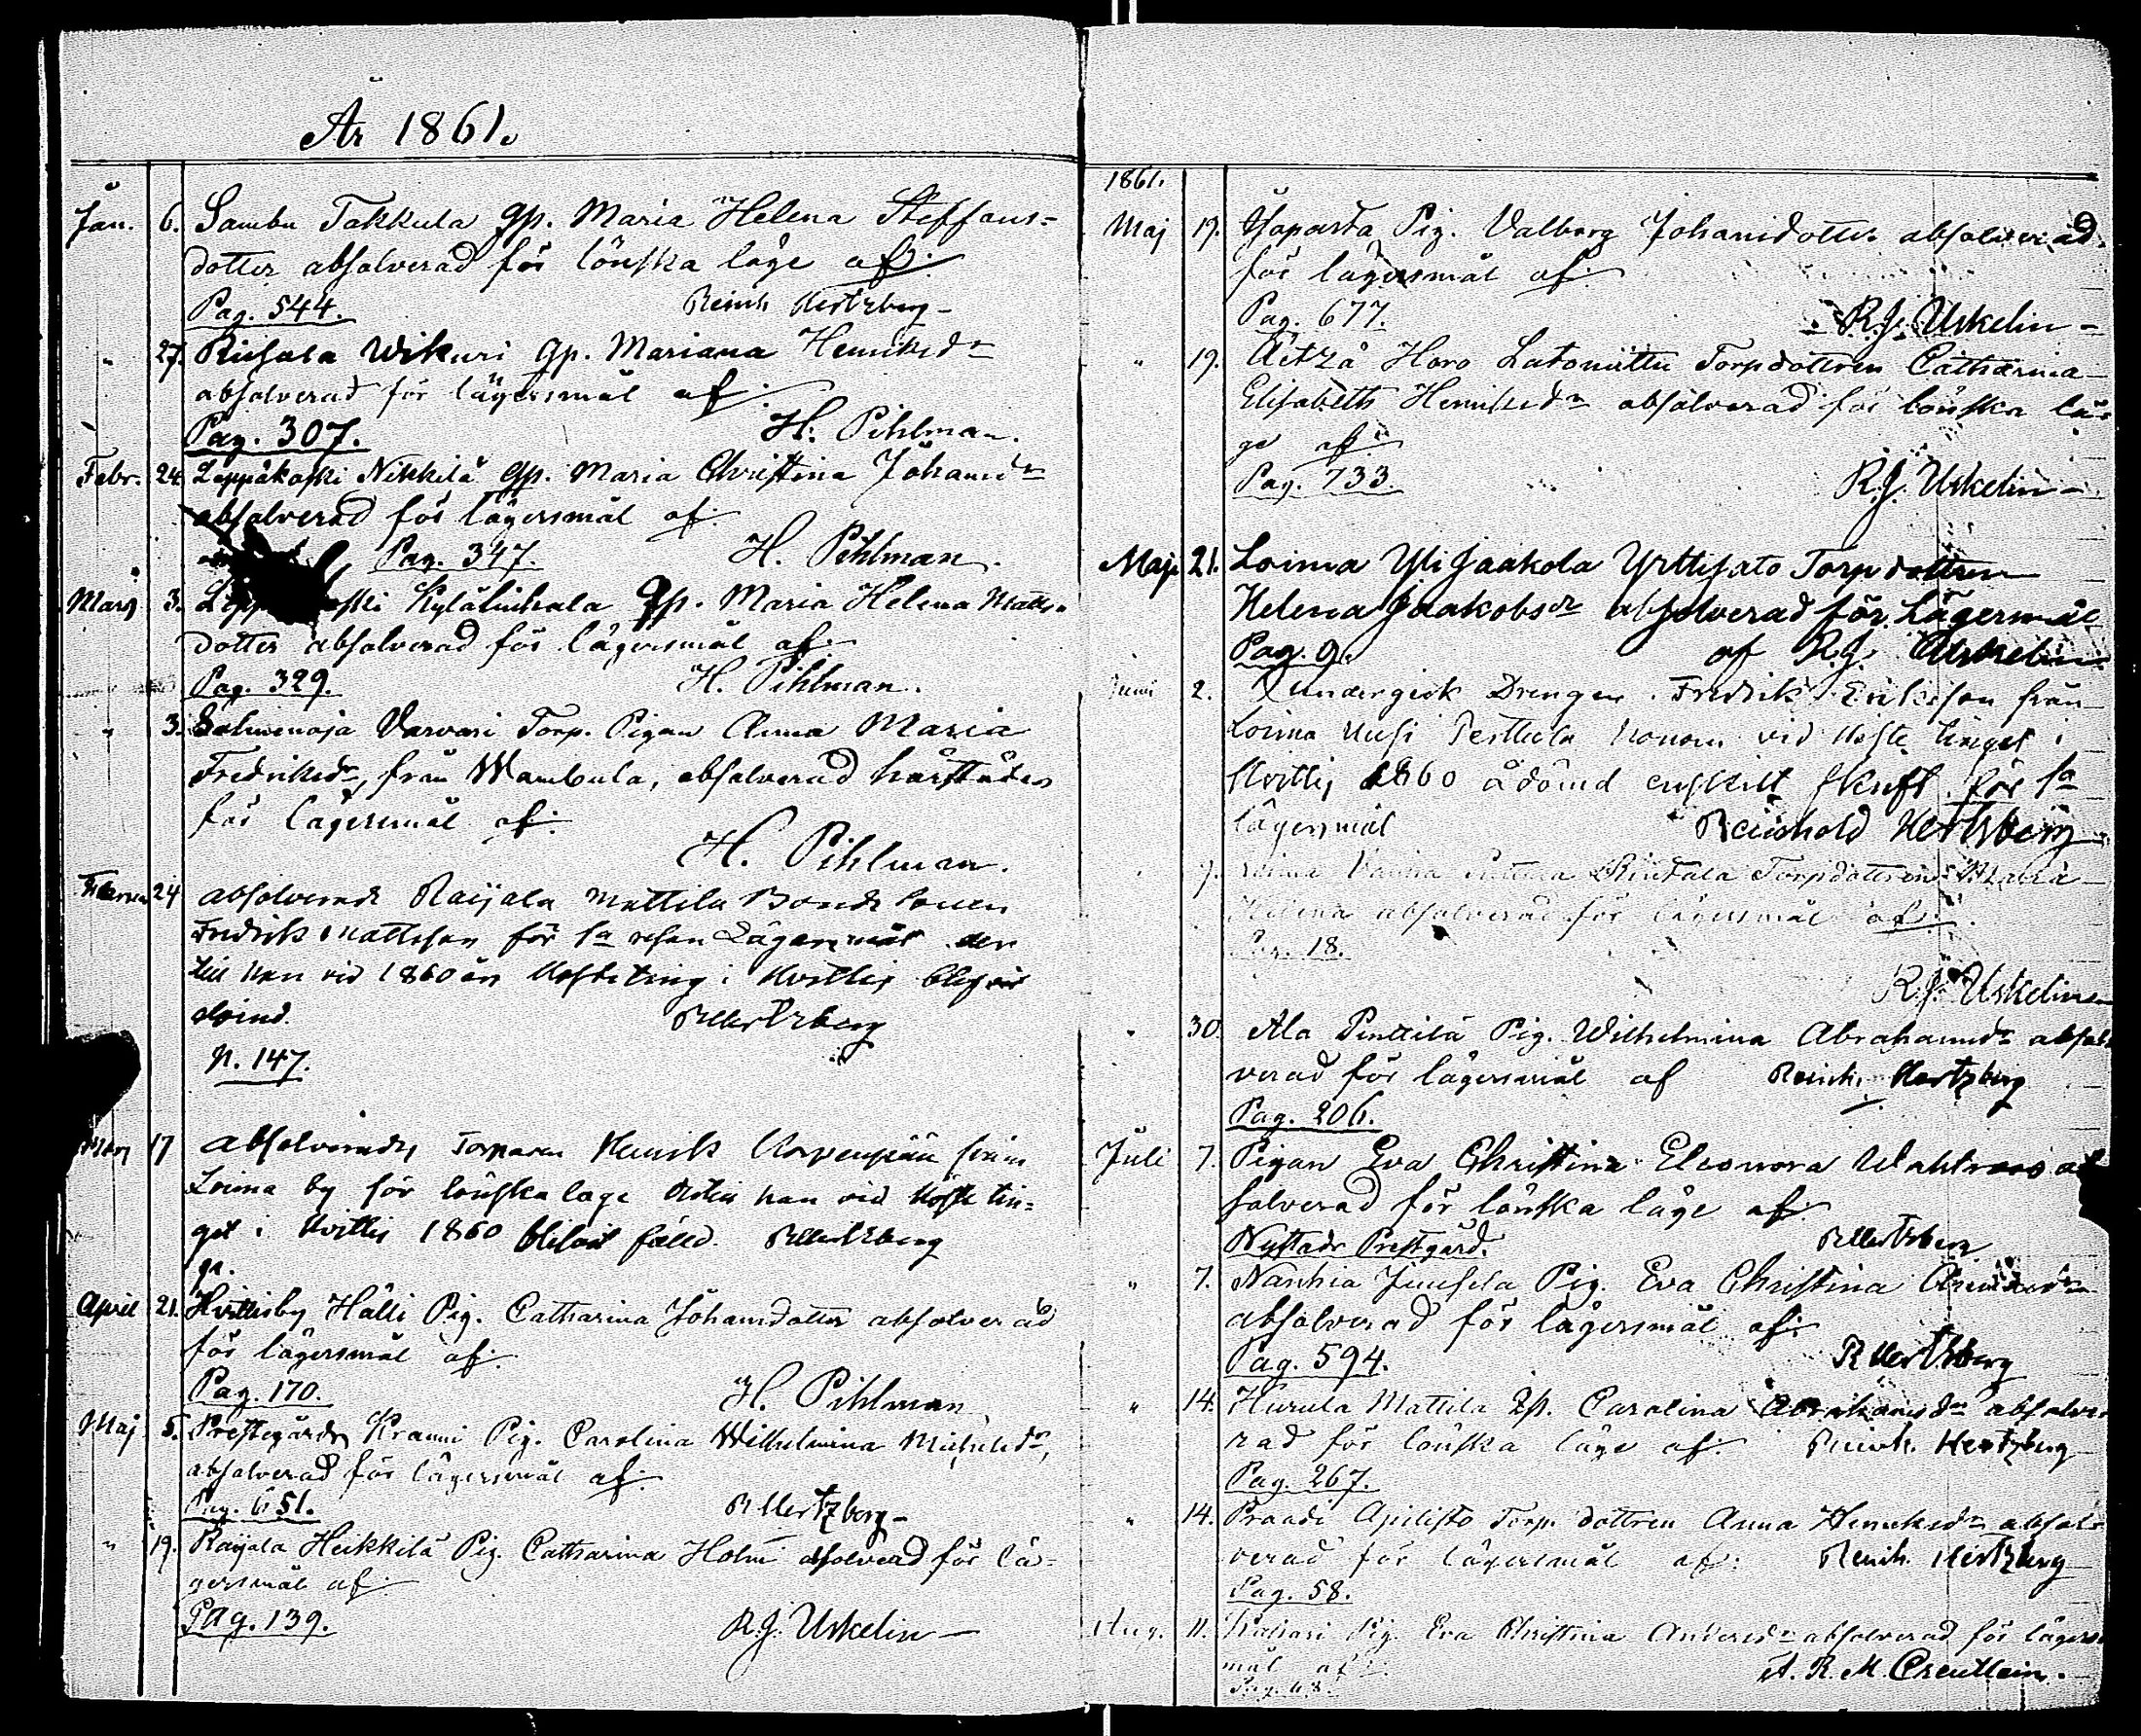 År 1861.
Jan. 6. Sambu Takkula Gp. Maria Helena Steffans=
dotter absolverad för lönska läge af:
Pag. 544. Reinh Hertzberg
" 27. Riesala Wikuri Gp. Mariana Henriksdr
absolverad för lägersmål af:
Pag. 307. H. Pihlman.
Febr. 24. Leppäkoski Nikkilä Gp. Maria Christina Johansdr
absolverad för lägersmål af:
Pag. 347. H. Pihlman.
Mars 3. Kylänliuhala Gp. Maria Helena Matts=
dotter absolverad för lägersmål af:
Pag. 329. H. Pihlman.
" 3. Varvari Torp. Pigan Anna Maria
Fredriksdr, från Wambula, absolverad härstädes
för lägersmål af:
H. Pihlman.
24 absolverade Raijala Mattila Bonde sonen
Fredrik Mattsson för 1a resan Lägersmål der
till han vid 1860 års Hösteting i Hvittis blifvit
dömd. RHertzberg
p. 147.
Mars 17 absolverades Torparen Henrik Korpenpää från
Loima by för lönska läge dertill han vid Höste tin=
get i Hvittis 1860 blifvit fälld. RHertzberg
April 21. Hvittisby Hälli Pig. Catharina Johansdotter absolverad
för lägersmål af:
Pag. 170. H. Pihlman
Maj 5. Prestegårds Kranni Pig. Carolina Wilhelmina Michelsdr,
absolverad för lägersmål af:
Pag. 651. RHertzberg
" 19. Raijala Heikkilä Pig. Catharina Holm absolverad för lä=
gersmål af:
Pag. 139. R.J. Uskelin
1861.
Maj 19. Pig. Valborg Johansdotter absolverad
för lägersmål af:
Pag. 677. R.J. Uskelin
" 19. Aetzä Horo Latoniittu Torpdottren Catharina
Elisabeth Henriksdr absolverad för lönska lä=
ge af:
Pag. 733. R.J. Uskelin
Maji 21. Loima Yli Jaakola Yrttisato Torpdottren
Helena Jaakobsdr absolverad för Lägersmål
Pag. 9. af R.J. Uskelin
Juni 2. undergick Drengen Fredrik Eriksson från
Loima Uusi Perttula honom vid Höste tinget i
Hvittis 1860 ådömd enskilt skrift för 1a
lägersmål Reinhold Hertzberg
" 9. Torpdottren Maria
Helena absolverad för lägersmål af:
Pag. 18.
R.J. Uskelin
" 30. Ala Penttilä Pig. Wilhelmina Abrahamsdr absol
verad för lägersmål af Reinh. Hertzberg
Pag. 206.
Juli 7. Pigan Eva Christina Eleonora ab
solverad för lönska läge af:
Nystads Prestgård. RHertzberg
" 7. Nanhia Junsela Pig. Eva Christina
absolverad för lägersmål af:
Pag. 594. RHertzberg
" 14. Hurula Mattila Gp. Carolina Abrahamsdr absolve
rad för lönska läge af: Reinh. Hertzberg
Pag. 267.
" 14. Torp. dottren Anna Henriksdr absol
verad för lägersmål af: Reinh. Hertzberg
Pag. 58.
Aug. 11. Pig. Eva Christina Andersdr absolverad för lägers
mål af:
A. R. M. Creutlein.